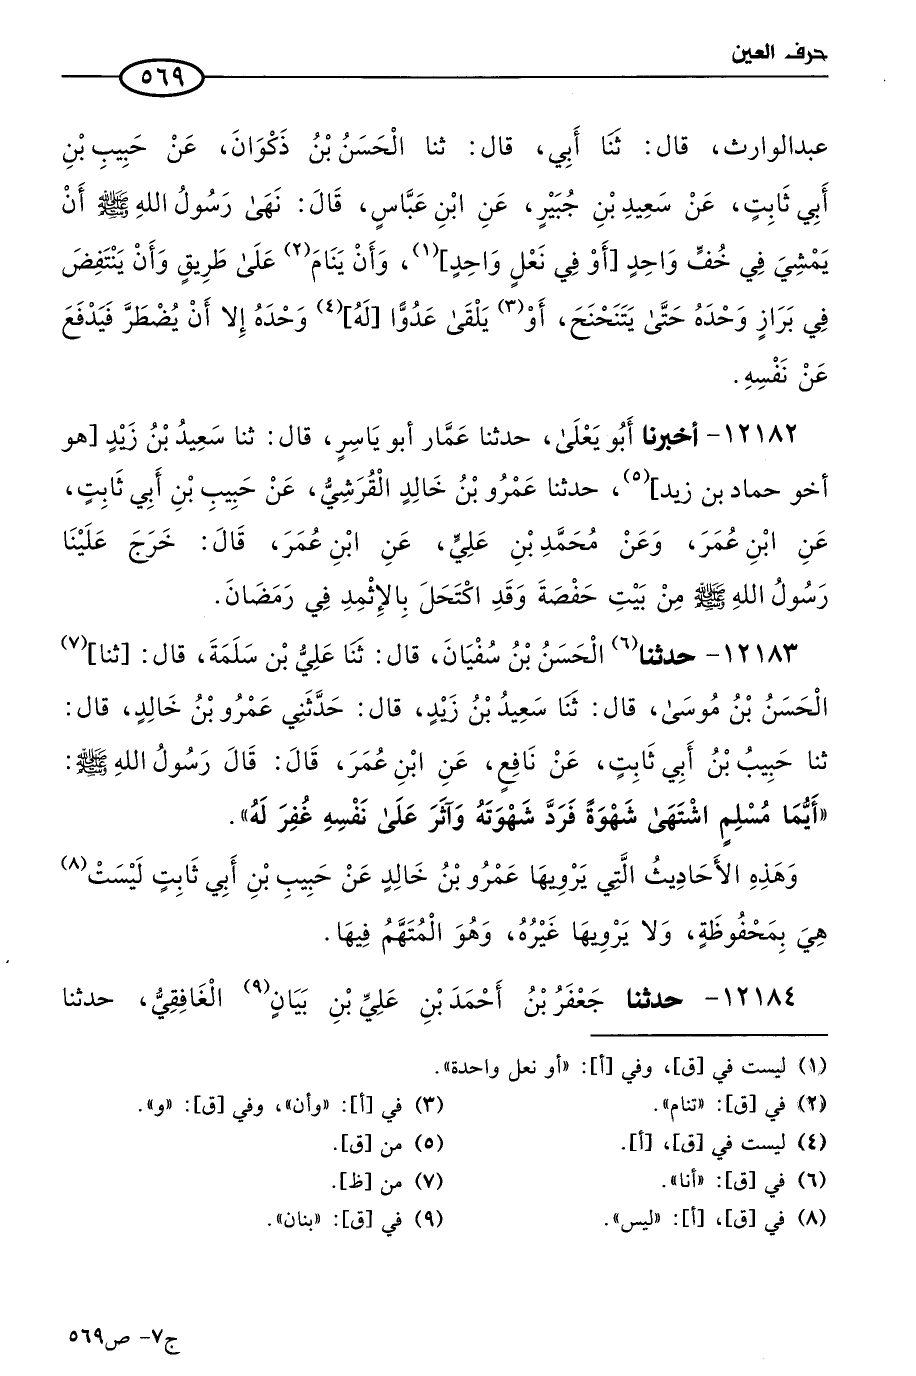 حرف العين
٥٦٩
عبدالوارث، قال: ثَنَا أَبِي، قال: ثنا الْحَسَنُ بْنُ ذَكْوَانَ، عَنْ حَبِيبِ بْنِ
أَبِي ثَابِتٍ، عَنْ سَعِيدِ بْنِ جُبَيْرٍ، عَنِ ابْنِ عَبَّاسٍ، قَالَ: نَهَىٰ رَسُولُ اللهِ ﷺ أَنْ
يَمْشِيَ فِي خُفٍّ وَاحِدٍ [أَوْ فِي نَعْلٍ وَاحِدٍ](١)، وَأَنْ يَنَامَ(٢) عَلَىٰ طَرِيقٍ وَأَنْ يَنْتَفِضَ
فِي بَرَازٍ وَحْدَهُ حَتَّىٰ يَتَنَحْنَحَ، أَوْ(٣) يَلْقَىٰ عَدُوًّا [لَهُ](٤) وَحْدَهُ إلا أَنْ يُضْطَرَّ فَيَدْفَعَ
عَنْ نَفْسِهِ.
١٢١٨٢- أخبرنا أَبُو يَعْلَىٰ، حدثنا عَمَّار أبو يَاسِرٍ، قال: ثنا سَعِيدُ بْنُ زَيْدٍ [هو
أخو حماد بن زيد](٥)، حدثنا عَمْرُو بْنُ خَالِدٍ الْقُرَشِيُّ، عَنْ حَبِيبِ بْنِ أَبِي ثَابِتٍ،
عَنِ ابْنِ عُمَرَ، وَعَنْ مُحَمَّدِ بْنِ عَلِيٍّ، عَنِ ابْنِ عُمَرَ، قَالَ: خَرَجَ عَلَيْنَا
رَسُولُ اللهِ ﷺ مِنْ بَيْتِ حَفْصَةَ وَقَدِ اكْتَحَلَ بِالإِثْمِدِ فِي رَمَضَانَ.
١٢١٨٣- حدثنا(٦) الْحَسَنُ بْنُ سُفْيَانَ، قال: ثَنَا عَلِيُّ بْن سَلَمَةَ، قال: [ثنا](٧)
الْحَسَنُ بْنُ مُوسَىٰ، قال: ثَنَا سَعِيدُ بْنُ زَيْدٍ، قال: حَدَّثَنِي عَمْرُو بْنُ خَالِدٍ، قال:
ثنا حَبِيبُ بْنُ أَبِي ثَابِتٍ، عَنْ نَافِعٍ، عَنِ ابْنِ عُمَرَ، قَالَ: قَالَ رَسُولُ اللهِ ﷺ:
«أَيُّمَا مُسْلِمٍ اشْتَهَىٰ شَهْوَةً فَرَدَّ شَهْوَتَهُ وَآثَرَ عَلَىٰ نَفْسِهِ غُفِرَ لَهُ».
وَهَذِهِ الأَحَادِيثُ الَّتِي يَرْوِيهَا عَمْرُو بْنُ خَالِدٍ عَنْ حَبِيبِ بْنِ أَبِي ثَابِتٍ لَيْسَتْ(٨)
هِيَ بِمَحْفُوظَةٍ، وَلا يَرْوِيهَا غَيْرُهُ، وَهُوَ الْمُتَّهَمُ فِيهَا.
١٢١٨٤- حدثنا جَعْفَرُ بْنُ أَحْمَدَ بْنِ عَلِيِّ بْنِ بَيَانٍ(٩) الْغَافِقِيُّ، حدثنا
(١) ليست في [ق]، وفي [أ]: «أو نعل واحدة».
(٢) في [ق]: «تنام». (٣) في [أ]: «وأن»، وفي [ق]: «و».
(٤) ليست في [ق]، [أ]. (٥) من [ق].
(٦) في [ق]: «أنا». (٧) من [ظ].
(٨) في [ق]، [أ]: «ليس». (٩) في [ق]: «بنان».
ج٧- ص٥٦٩